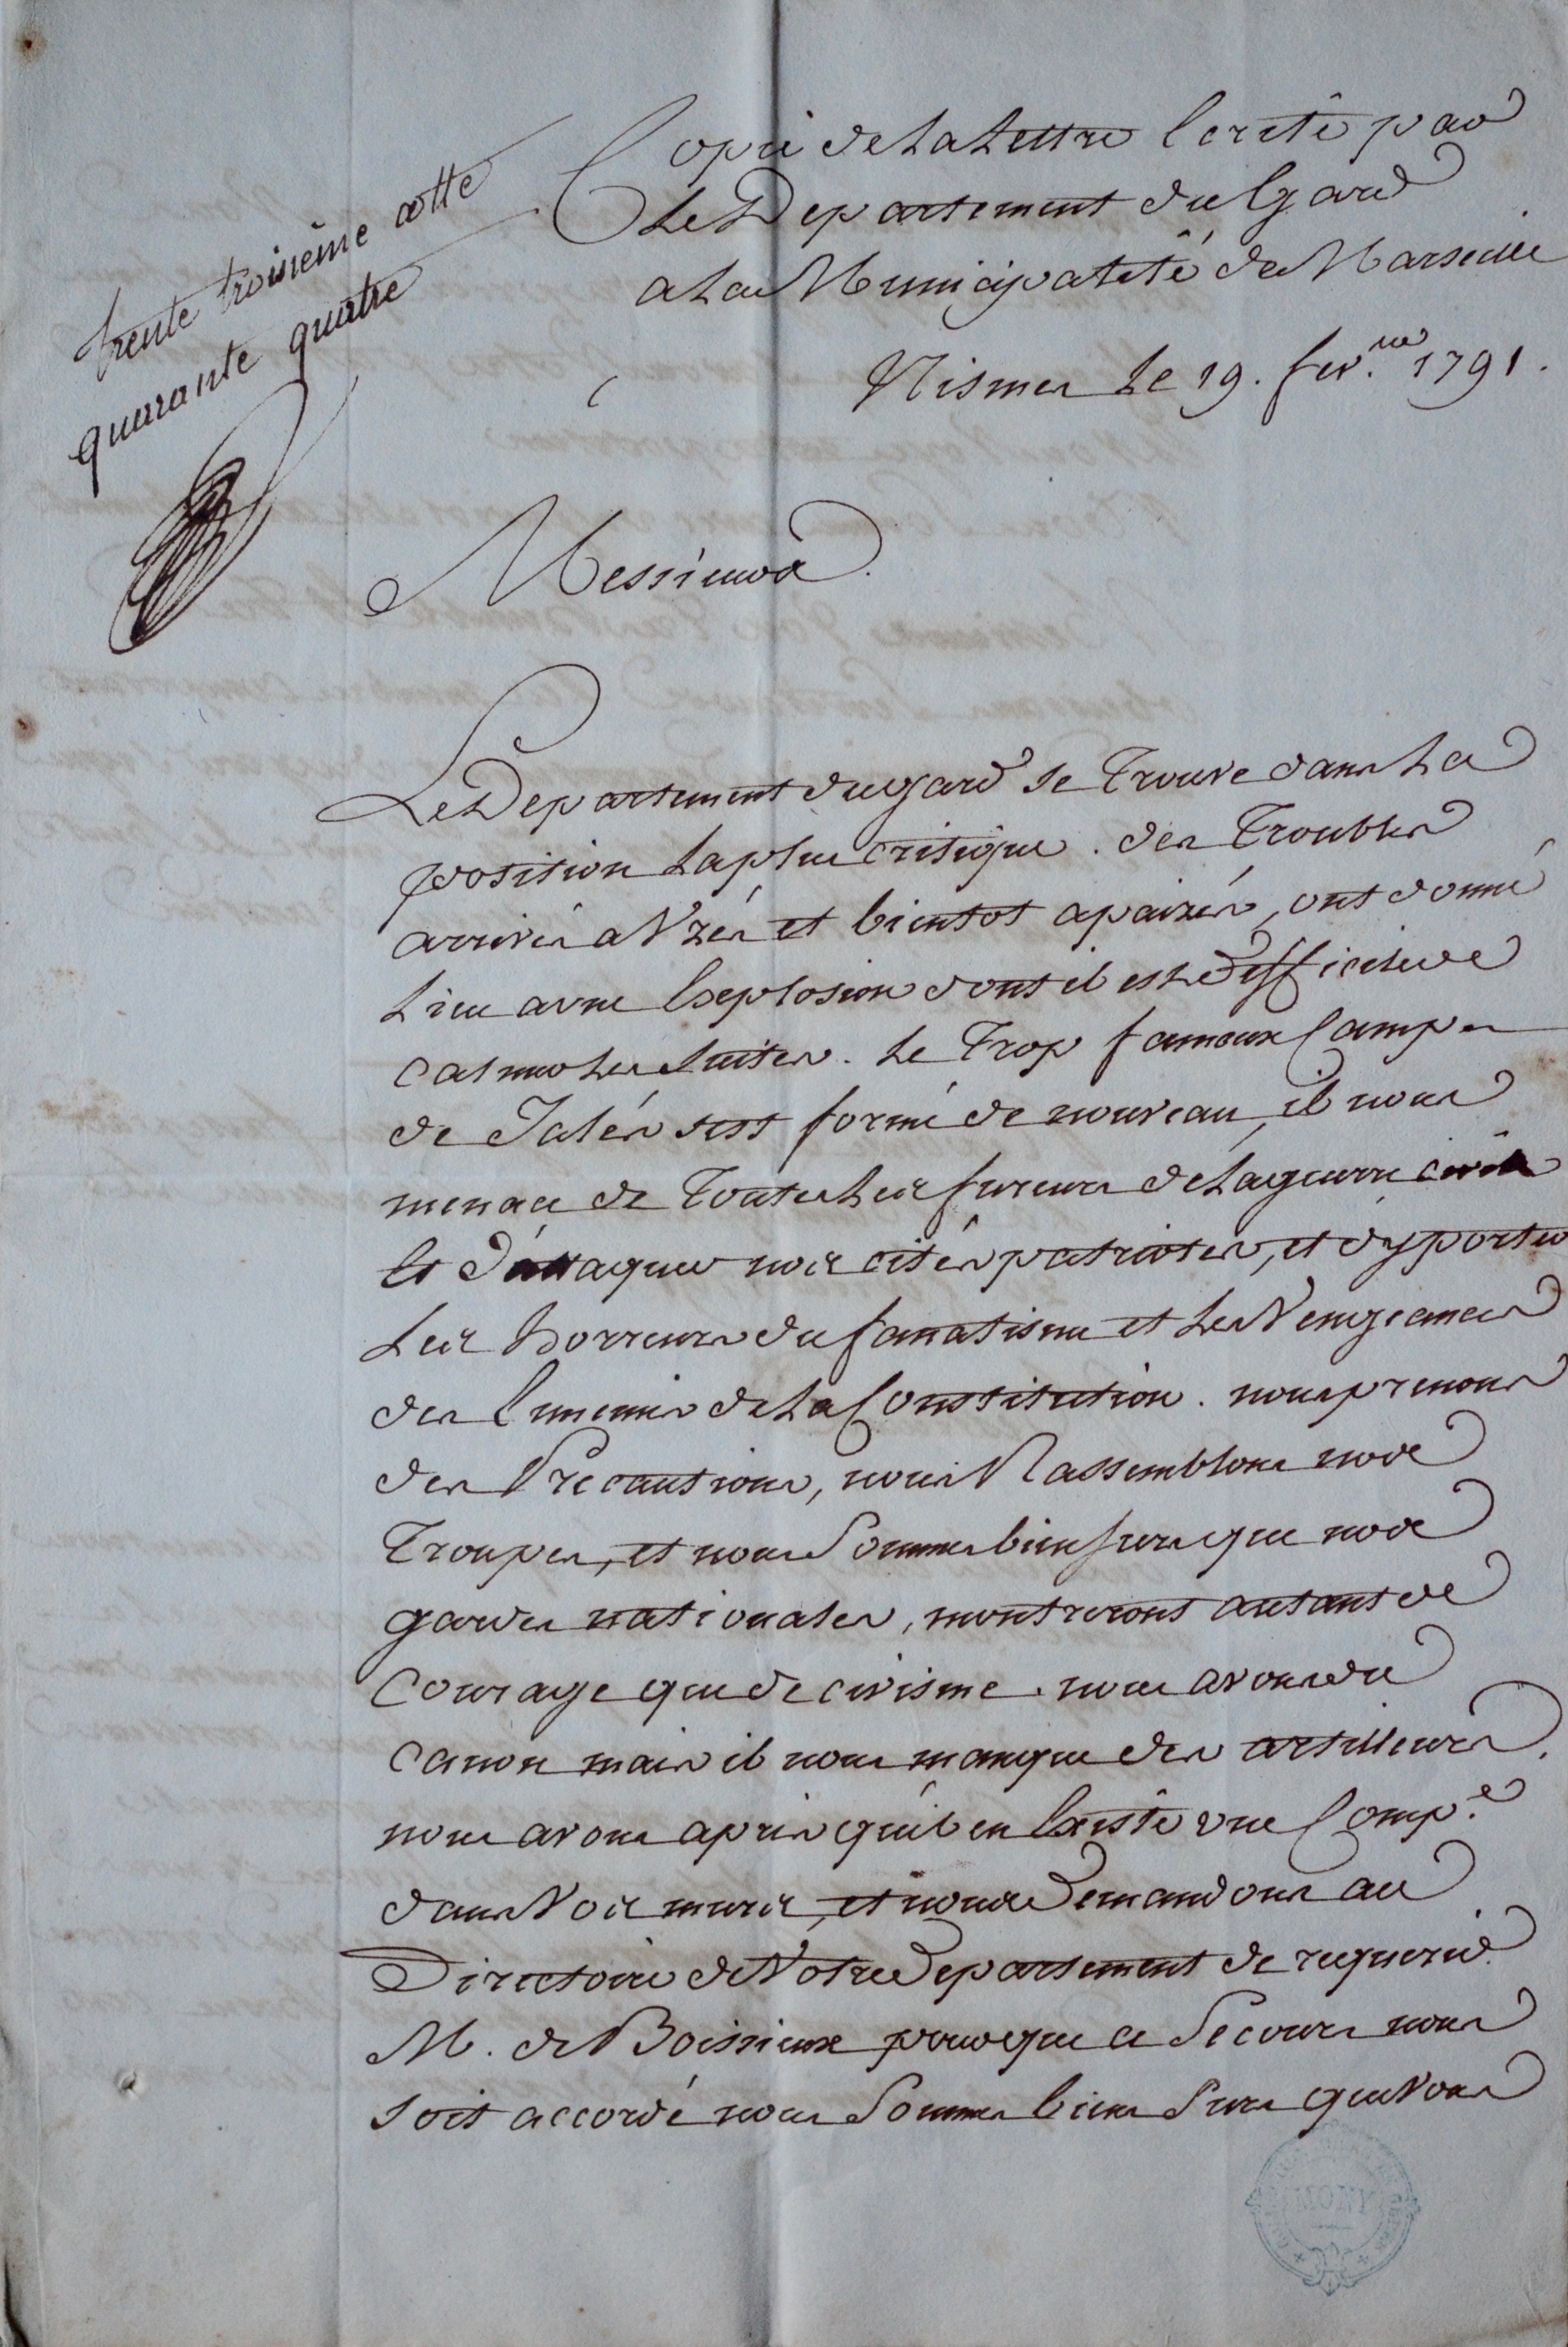 trente troisième cotte
quarante quatre
Copie de la Lettre Ecrite par
Le Departement du Gard
a la Municipalité de Marseille
Nismes Le 19. fev.er 1791.
Messieurs.
Le Departement du gard se Trouve dans La
position La plus critique. des Troubles
arrivés a Uzés et bientot apaisés, ont donné
Lieu a une Explosion dont il est Difficile de
calmer Les suites. Le Trop fameux Camp
de Jalés s'est formé de nouveau, il nous
menace de Toutes Les fureurs de La guerre civile
Et d'attaquer nos cités patriotes, et d'y porter
Les horreurs du fanatisme et Les Vengeances
des Ennemis de La Constitution. nous prenons
des Precautions, nous Rassemblons nos
Troupes, et nous Sommes bien surs que nos
gardes nationales, montreront autant de
Courage que de civisme. nous avons du
canon mais il nous manque des artilleurs.
nous avons apris qu'il en Existe une Comp.e
dans Vos murs, et nous Demandons au
Directoire de Votre Departement de requerir
M. de Boissieux pour que ce Secours nous
soit accordé nous Sommes bien Surs que Vous
MONY